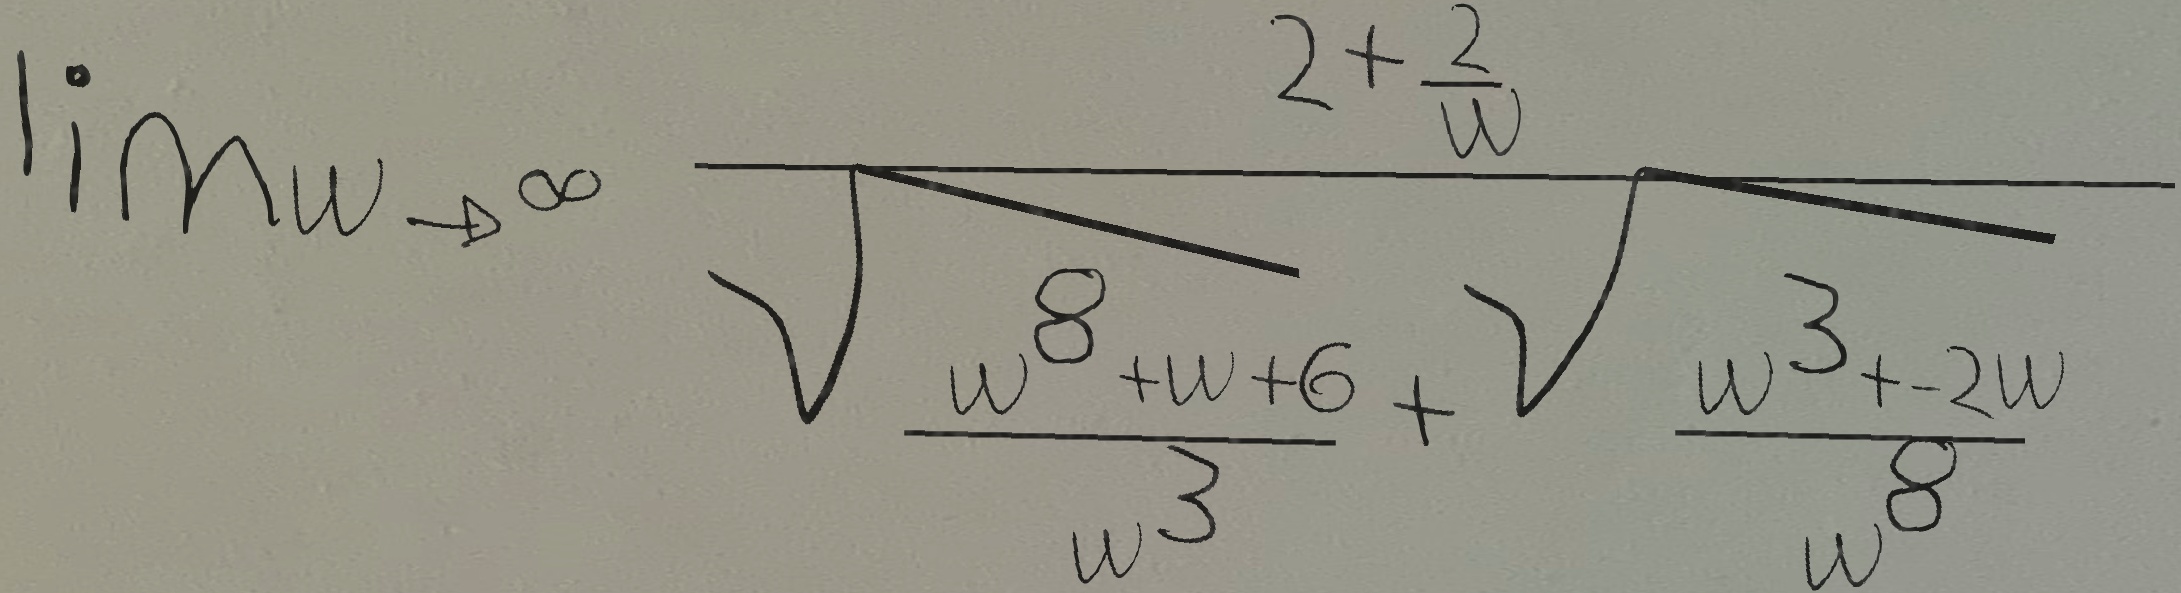 \lim_{w \to \infty} \frac{2 + \frac{2}{w}}{\sqrt{\frac{w^8 + w + 6}{w^3}} + \sqrt{\frac{w^3 + -2w}{w^8}}}